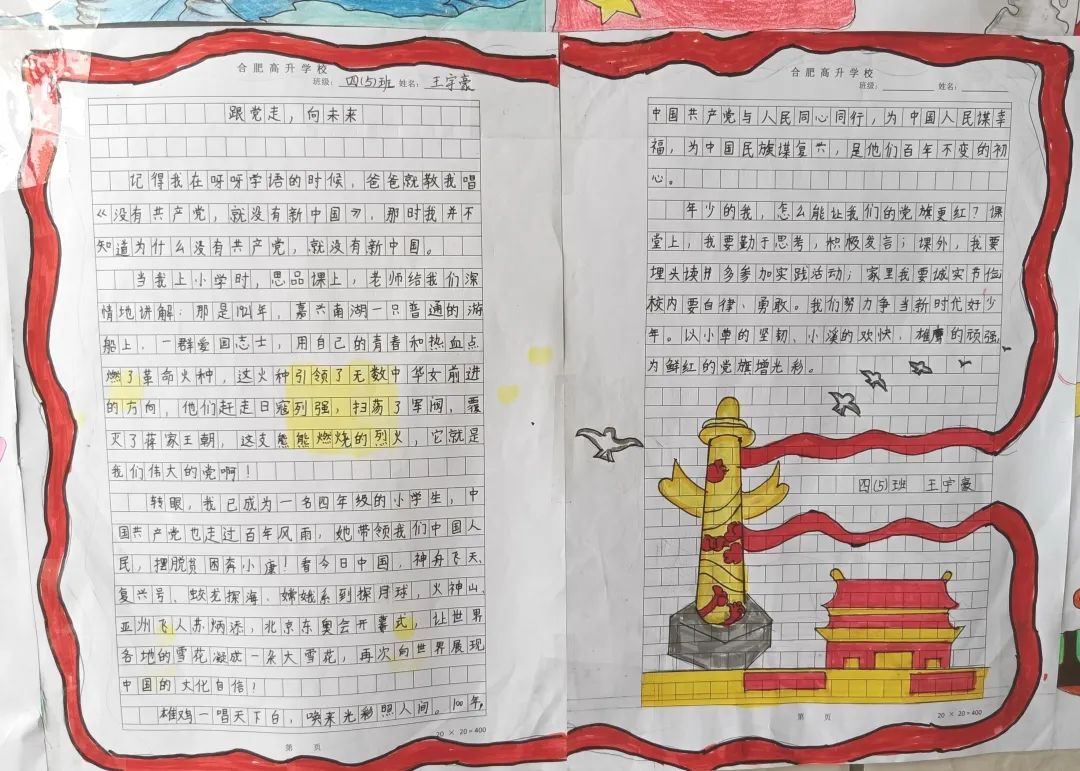 合肥高升学校
班级：四(5)班 姓名：王宇豪
跟党走，向未来
记得我在呀呀学语的时候，爸爸就教我唱
《没有共产党，就没有新中国》，那时我并不
知道为什么没有共产党，就没有新中国。
当我上小学时，思品课上，老师给我们深
情地讲解：那是1921年，嘉兴南湖一只普通的游
船上，一群爱国志士，用自己的青春和热血点
燃了革命火种，这火种引领了无数中华女前进
的方向，他们赶走日寇列强，扫荡了军阀，覆
灭了蒋家王朝，这支熊熊燃烧的烈火，它就是
我们伟大的党啊！
转眼，我已成为一名四年级的小学生，中
国共产党也走过百年风雨，她带领我们中国人
民，摆脱贫困奔小康！看今日中国，神舟飞天、
复兴号、蛟龙探海、嫦娥系到探月球，火神山、
亚洲飞人苏炳添，北京东奥会开幕式，让世界
各地的雪花凝成一朵大雪花，再次向世界展现
中国的文化自信！
雄鸡一唱天下白，唤来光彩照人间。100年，
20 × 20＝400
第 页
合肥高升学校
班级： 姓名：
中国共产党与人民同心同行，为中国人民谋幸
福，为中国民族谋复兴，是他们百年不变的初
心。
年少的我，怎么能让我们的党旗更红？课
堂上，我要勤于思考，积极发言；课外，我要
埋头读书多参加实践活动；家里我要诚实节俭
校内要自律、勇敢。我们努力争当新时代好少
年。以小草的坚韧、小溪的欢快，雄鹰的顽强，
为鲜红的党旗增光彩。
四(5)班 王宇豪
20 × 20＝400
第 页